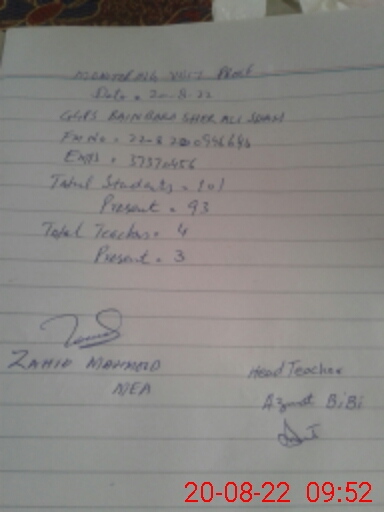 MONITORING VISIT PROOF
Date = 20-8-22
GGPS BAIN BARA SHER ALI SHAH
EMIS = 37370456
Total Students = 101
Present = 93
Total Teachers = 4
Present = 3
ZAHID MAHMOOD
MEA
Head Teacher
Azmat BiBi
20-08-22 09:52